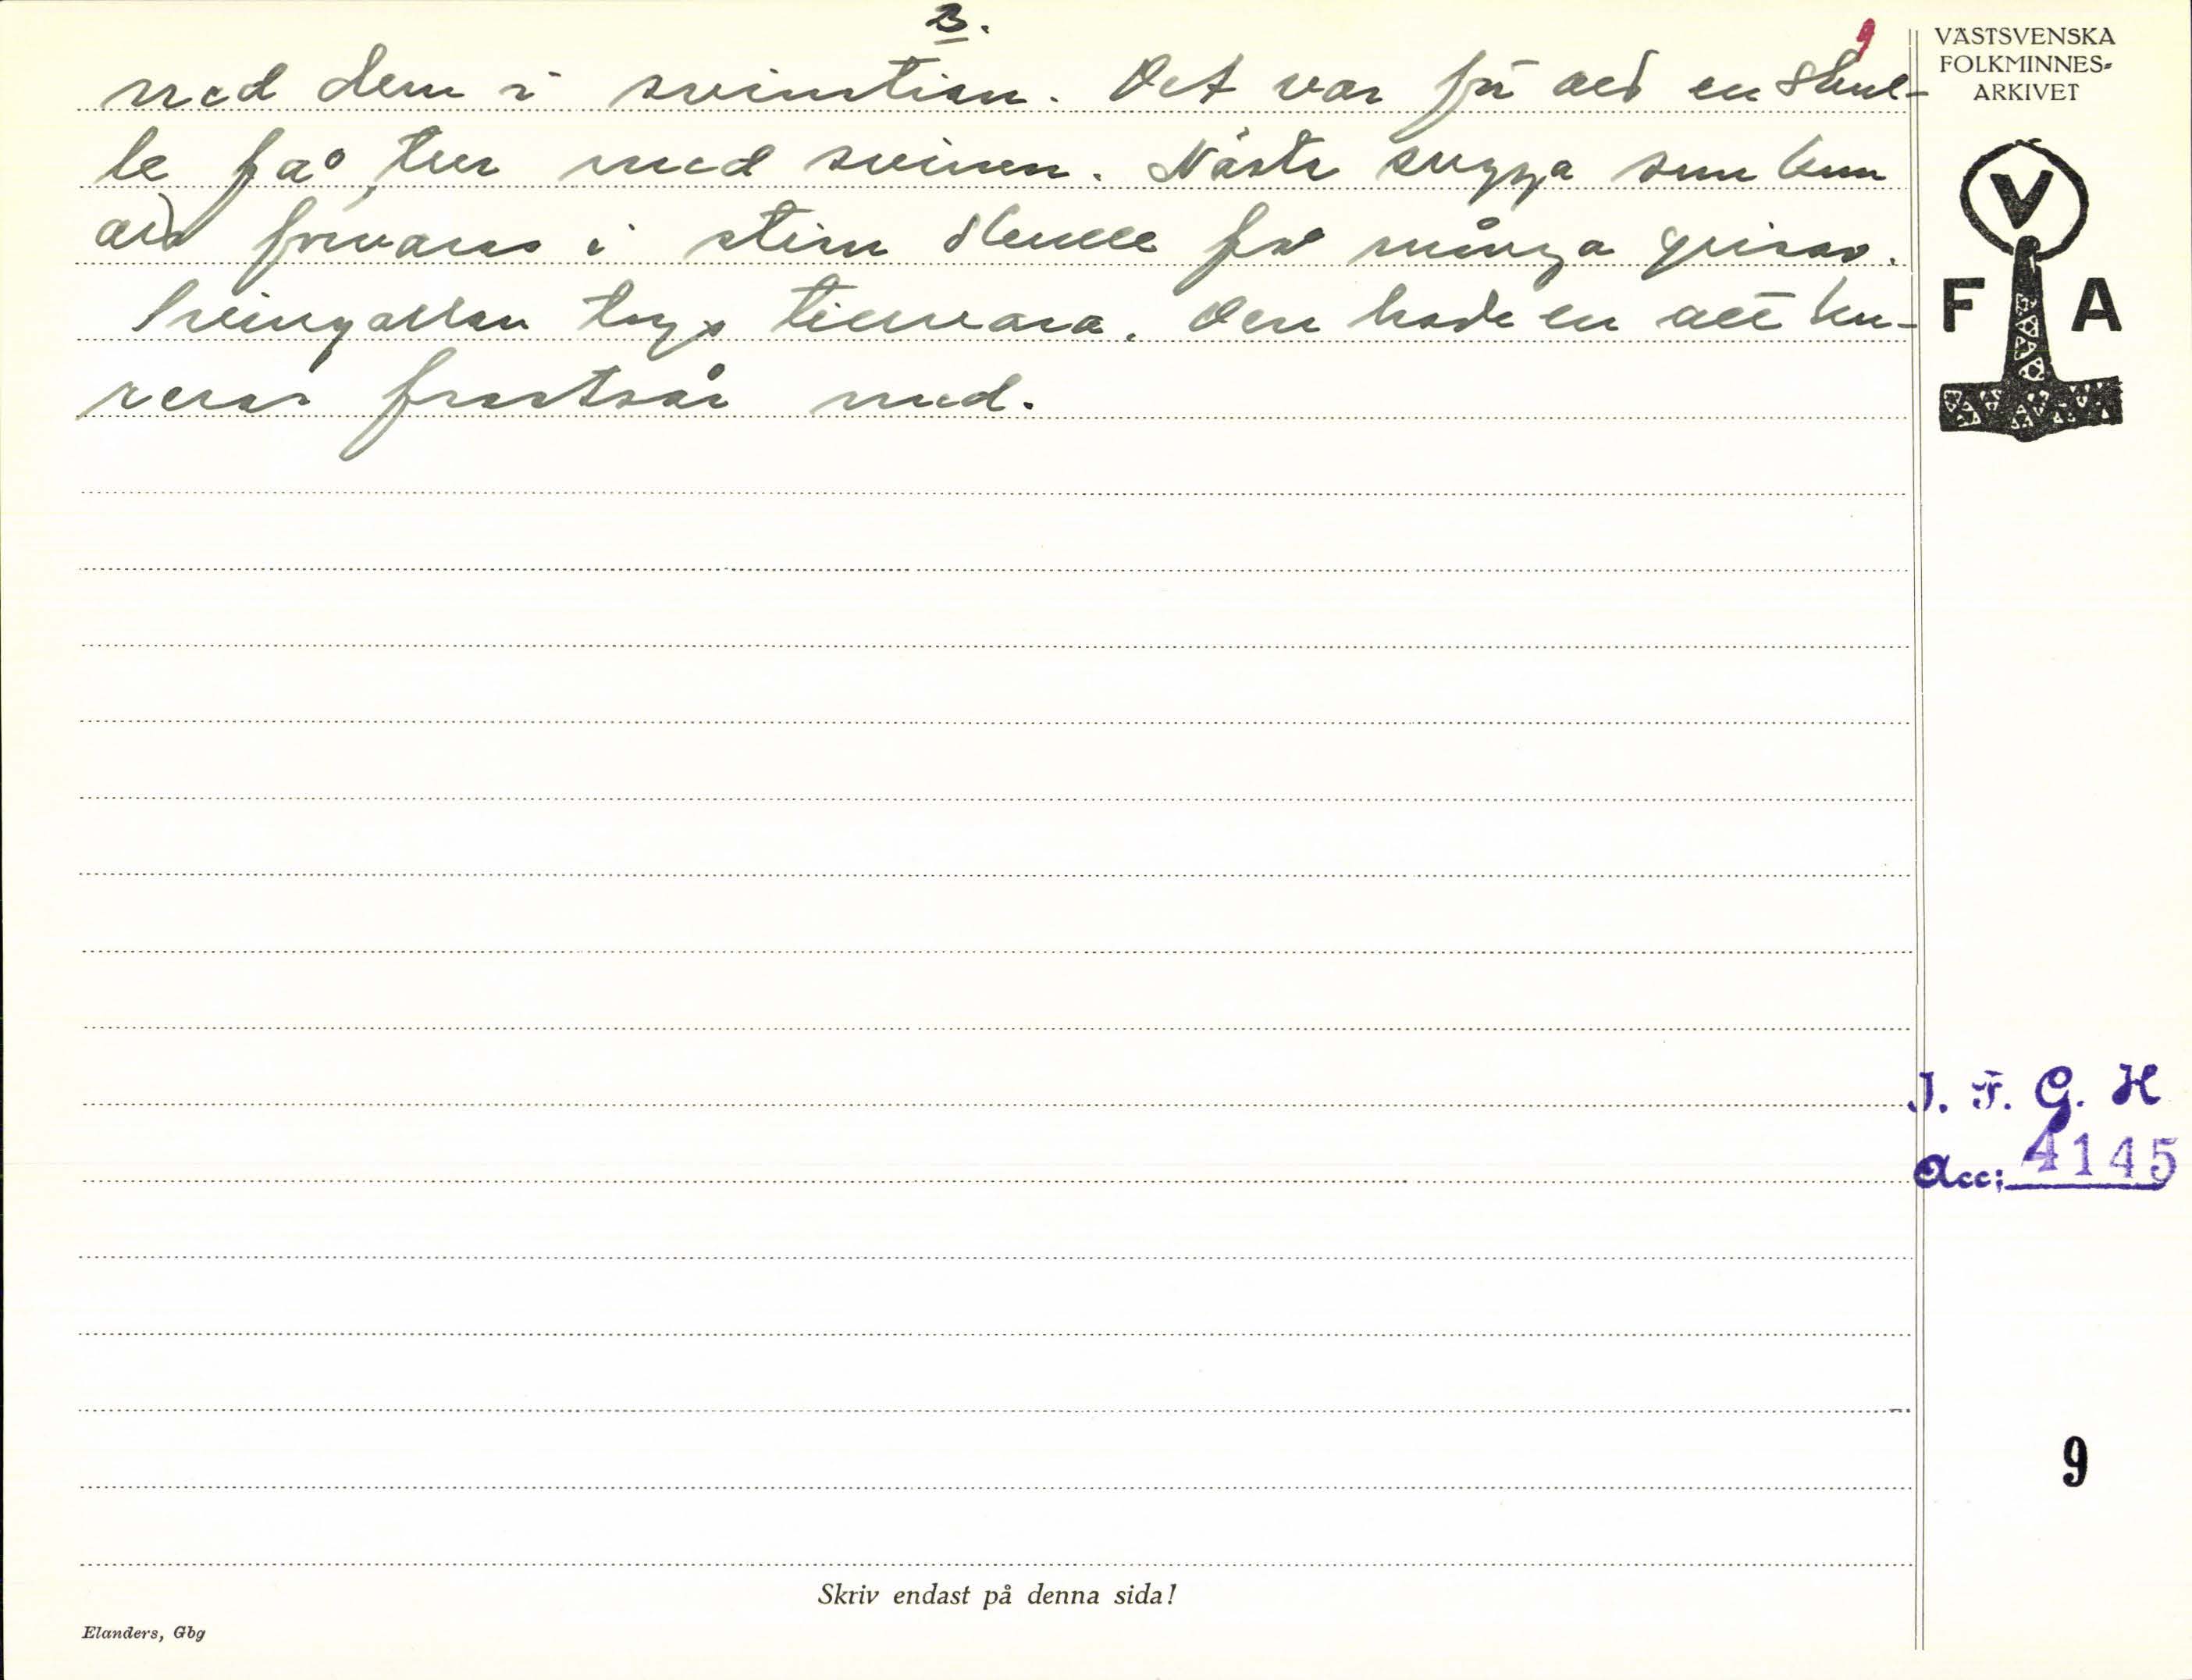 3.
9
med dem i svinstian. Det var för att en skul-
le få tur med svinen. Nästa sugga som kom
att förvaras i stian skulle få många grisar.
Svingallan togs tillvara. Den hade en att ku-
rera frostsår med.
VÄSTSVENSKA
FOLKMINNES-
ARKIVET
V
F A
I. F. G. H
Acc: 4145
9
Skriv endast på denna sida!
Elanders, Gbg